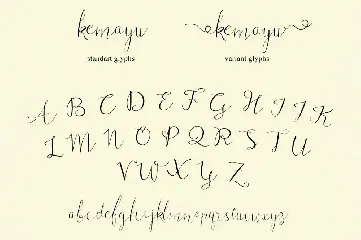 kemayu kemayu
standart glyphs variant glyphs
A B C D E F G H I J K
L M N O P Q R S T U
V W X Y Z
abcdefghijklmnopqrstuvwxyz